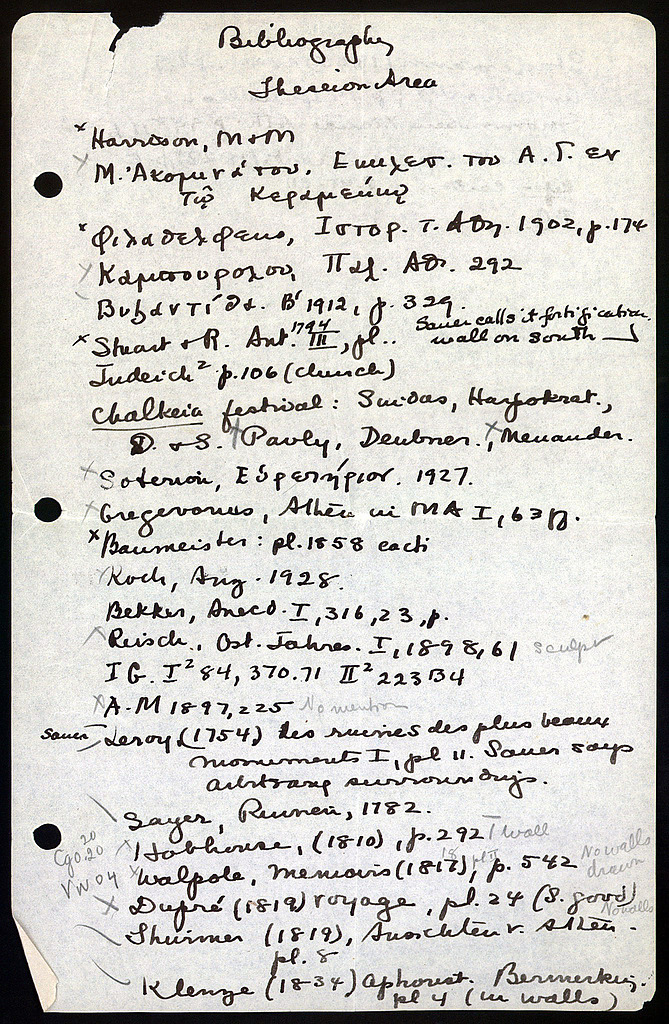 Bibliography
Theseion Area
x Harrison, M & M
x Μ. Ακομινάτου, Εκκλεσ. του Α. Γ. εν
τῷ Κεραμεικῷ
x Φιλαδελφευς, Ιστορ. τ. Αθη. 1902, p. 174
x Καμπουρογλου, Παλ. Αθ. 292
Βυζαντίδα. Β' 1912, p. 329.
x Stuart & R. Ant. 1794 III, pl.. Sauer calls it fortification
wall on south
Judeich² p. 106 (church)
Chalkeia festival: Suidas, Harpokrat.,
D. & S. x Pauly, Deubner., x Menander.
x Soteriou, Εὑρετήριον. 1927.
x Gregorovius, Athen in MA I, 63 ff.
x Baumeister: pl. 1858
Koch, Ang. 1928.
Bekker, Anecd. I, 316, 23, p.
x Reisch., Ost. Jahres. I, 1898, 61 sculpt
IG. I² 84, 370.71 II² 223 B4
x A.M 1897, 225 No mention
Sauer Leroy (1754) Les ruines des plus beaux
monuments I, pl 11. Sauer says
arbitrary surroundings.
\ Sayer, Ruinen, 1782.
x Hobhouse, (1810), p. 292 T wall
x Walpole, Memoirs (1817), p. 542 No walls
drawn
x Dupré (1819) Voyage, pl. 24 (S. good) No walls
\ Thürmer (1819), Ansichten v. Athen.
pl. 8
\ Klenze (1834) Aphorist. Bemerkung.
pl 4 (in walls)